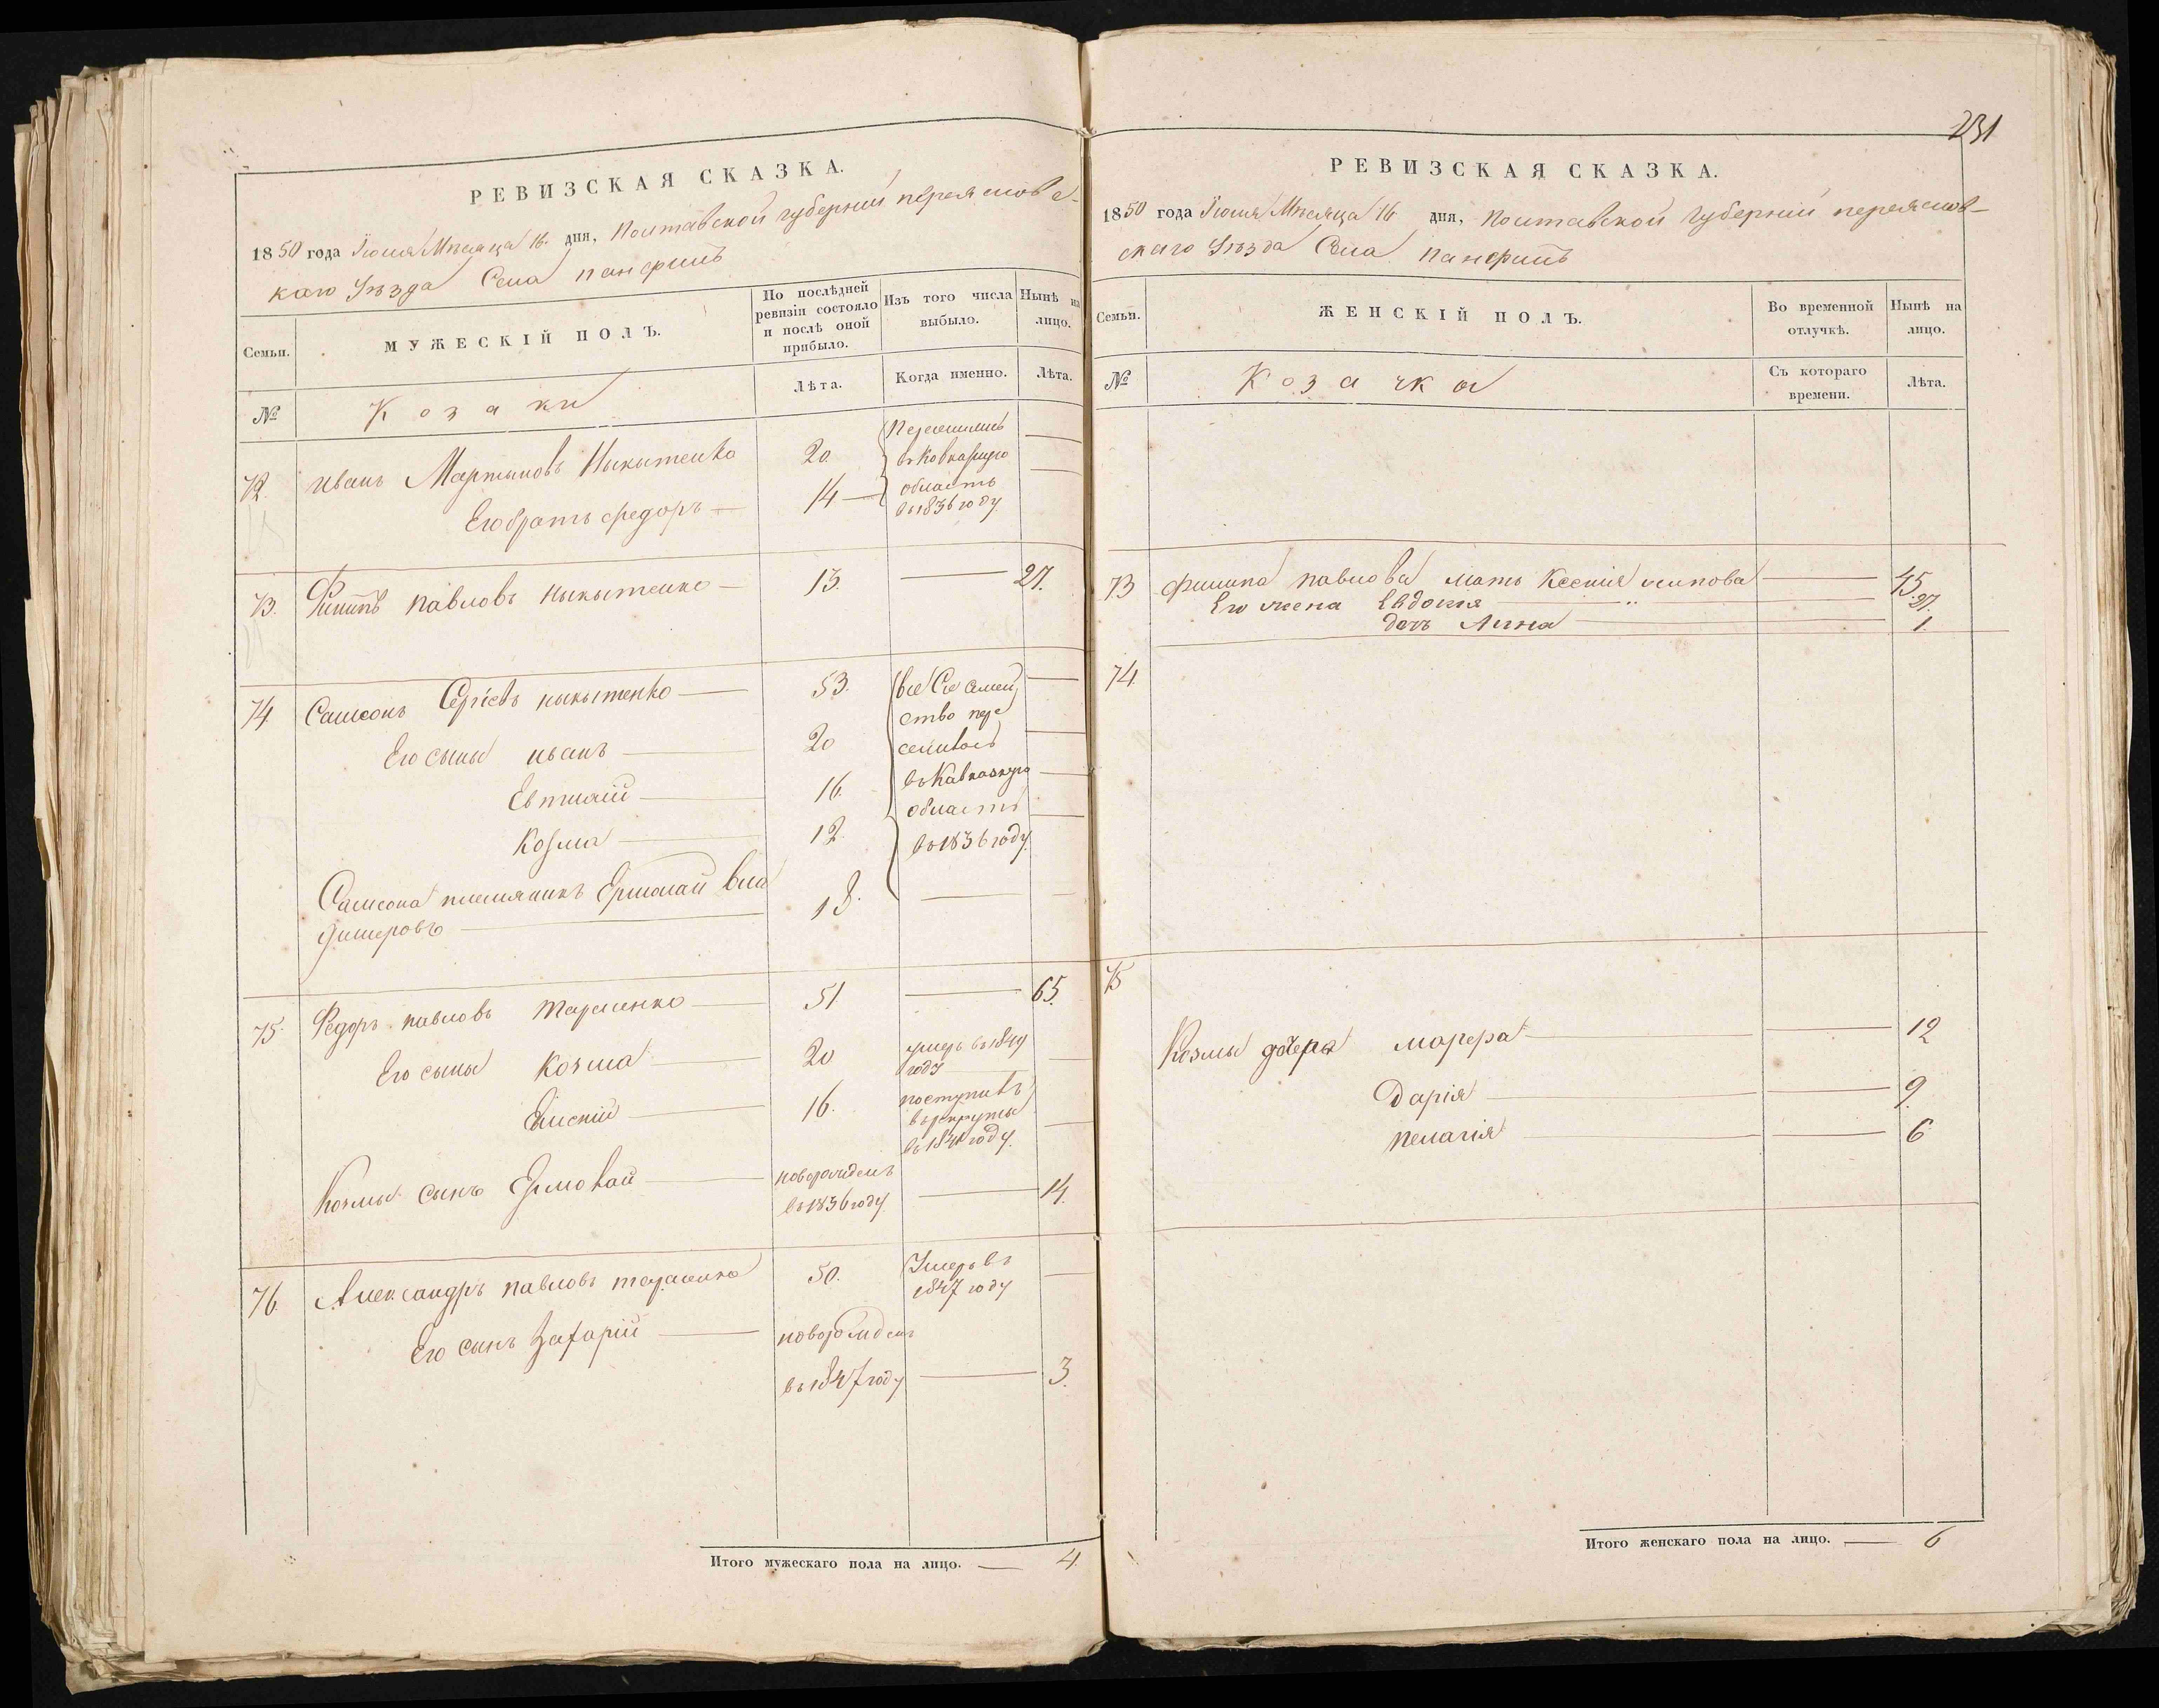 РЕВИЗСКАЯ СКАЗКА.
1850 года Іюня Мѣсяца 16 дня, Полтавской губерніи переяслове-
каго Уѣзда Села Панфилъ
Семьи.
МУЖЕСКІЙ ПОЛЪ.
По послѣдней ревизіи состояло и послѣ оной прибыло.
Изъ того числа выбыло.
Нынѣ на лицо.
№
Козаки
Лѣта.
Когда именно.
Лѣта.
72. Иванъ Мартыновъ Ныкытенко 20.
Его братъ Федоръ 14
Переселились
въ Кавказскую
область
въ 1836 году
73. Филипъ Павловъ Ныкытенко 13. 27.
74 Самсонъ Сергіевъ ныкытенко 53.
Его сыны иванъ 20
Евтихій 16.
Козма 12.
Самсона племяникъ Ермолай Вла
димеровъ 18.
все Сіе Семей
ство пере
селилось
въ Кавказкую
область
въ 1836 году
75. Федоръ павловъ Тарасенко 51 65.
Его сыны Козма 20 умеръ въ 1849
году
16. поступилъ
въ рекруты
въ 1841 году.
Козмы сынъ Ермолай новорожденъ
въ 1836 году 14.
76. Александръ павловъ тарасенко 50. Умеръ въ
1847 году
Его сынъ Захарій новорожденъ
въ 1847 году 3.
Итого мужескаго пола на лицо. 4.
231
РЕВИЗСКАЯ СКАЗКА.
1850 года Іюня Мѣсяца 16 дня, Полтавской Губерніи переяслов-
скаго Уѣзда Села Панфилъ
Семьи.
ЖЕНСКІЙ ПОЛЪ.
Во временной отлучкѣ.
Нынѣ на лицо.
№
Козачкы
Съ котораго времени.
Лѣта.
73 Филипа павлова мать Ксенія осипова 45.
Его жена Евдокія 27.
дочь Анна 1.
74.
75
Козмы дочера марфа 12
Дарія 9.
пелагія 6
Итого женскаго пола на лицо. 6